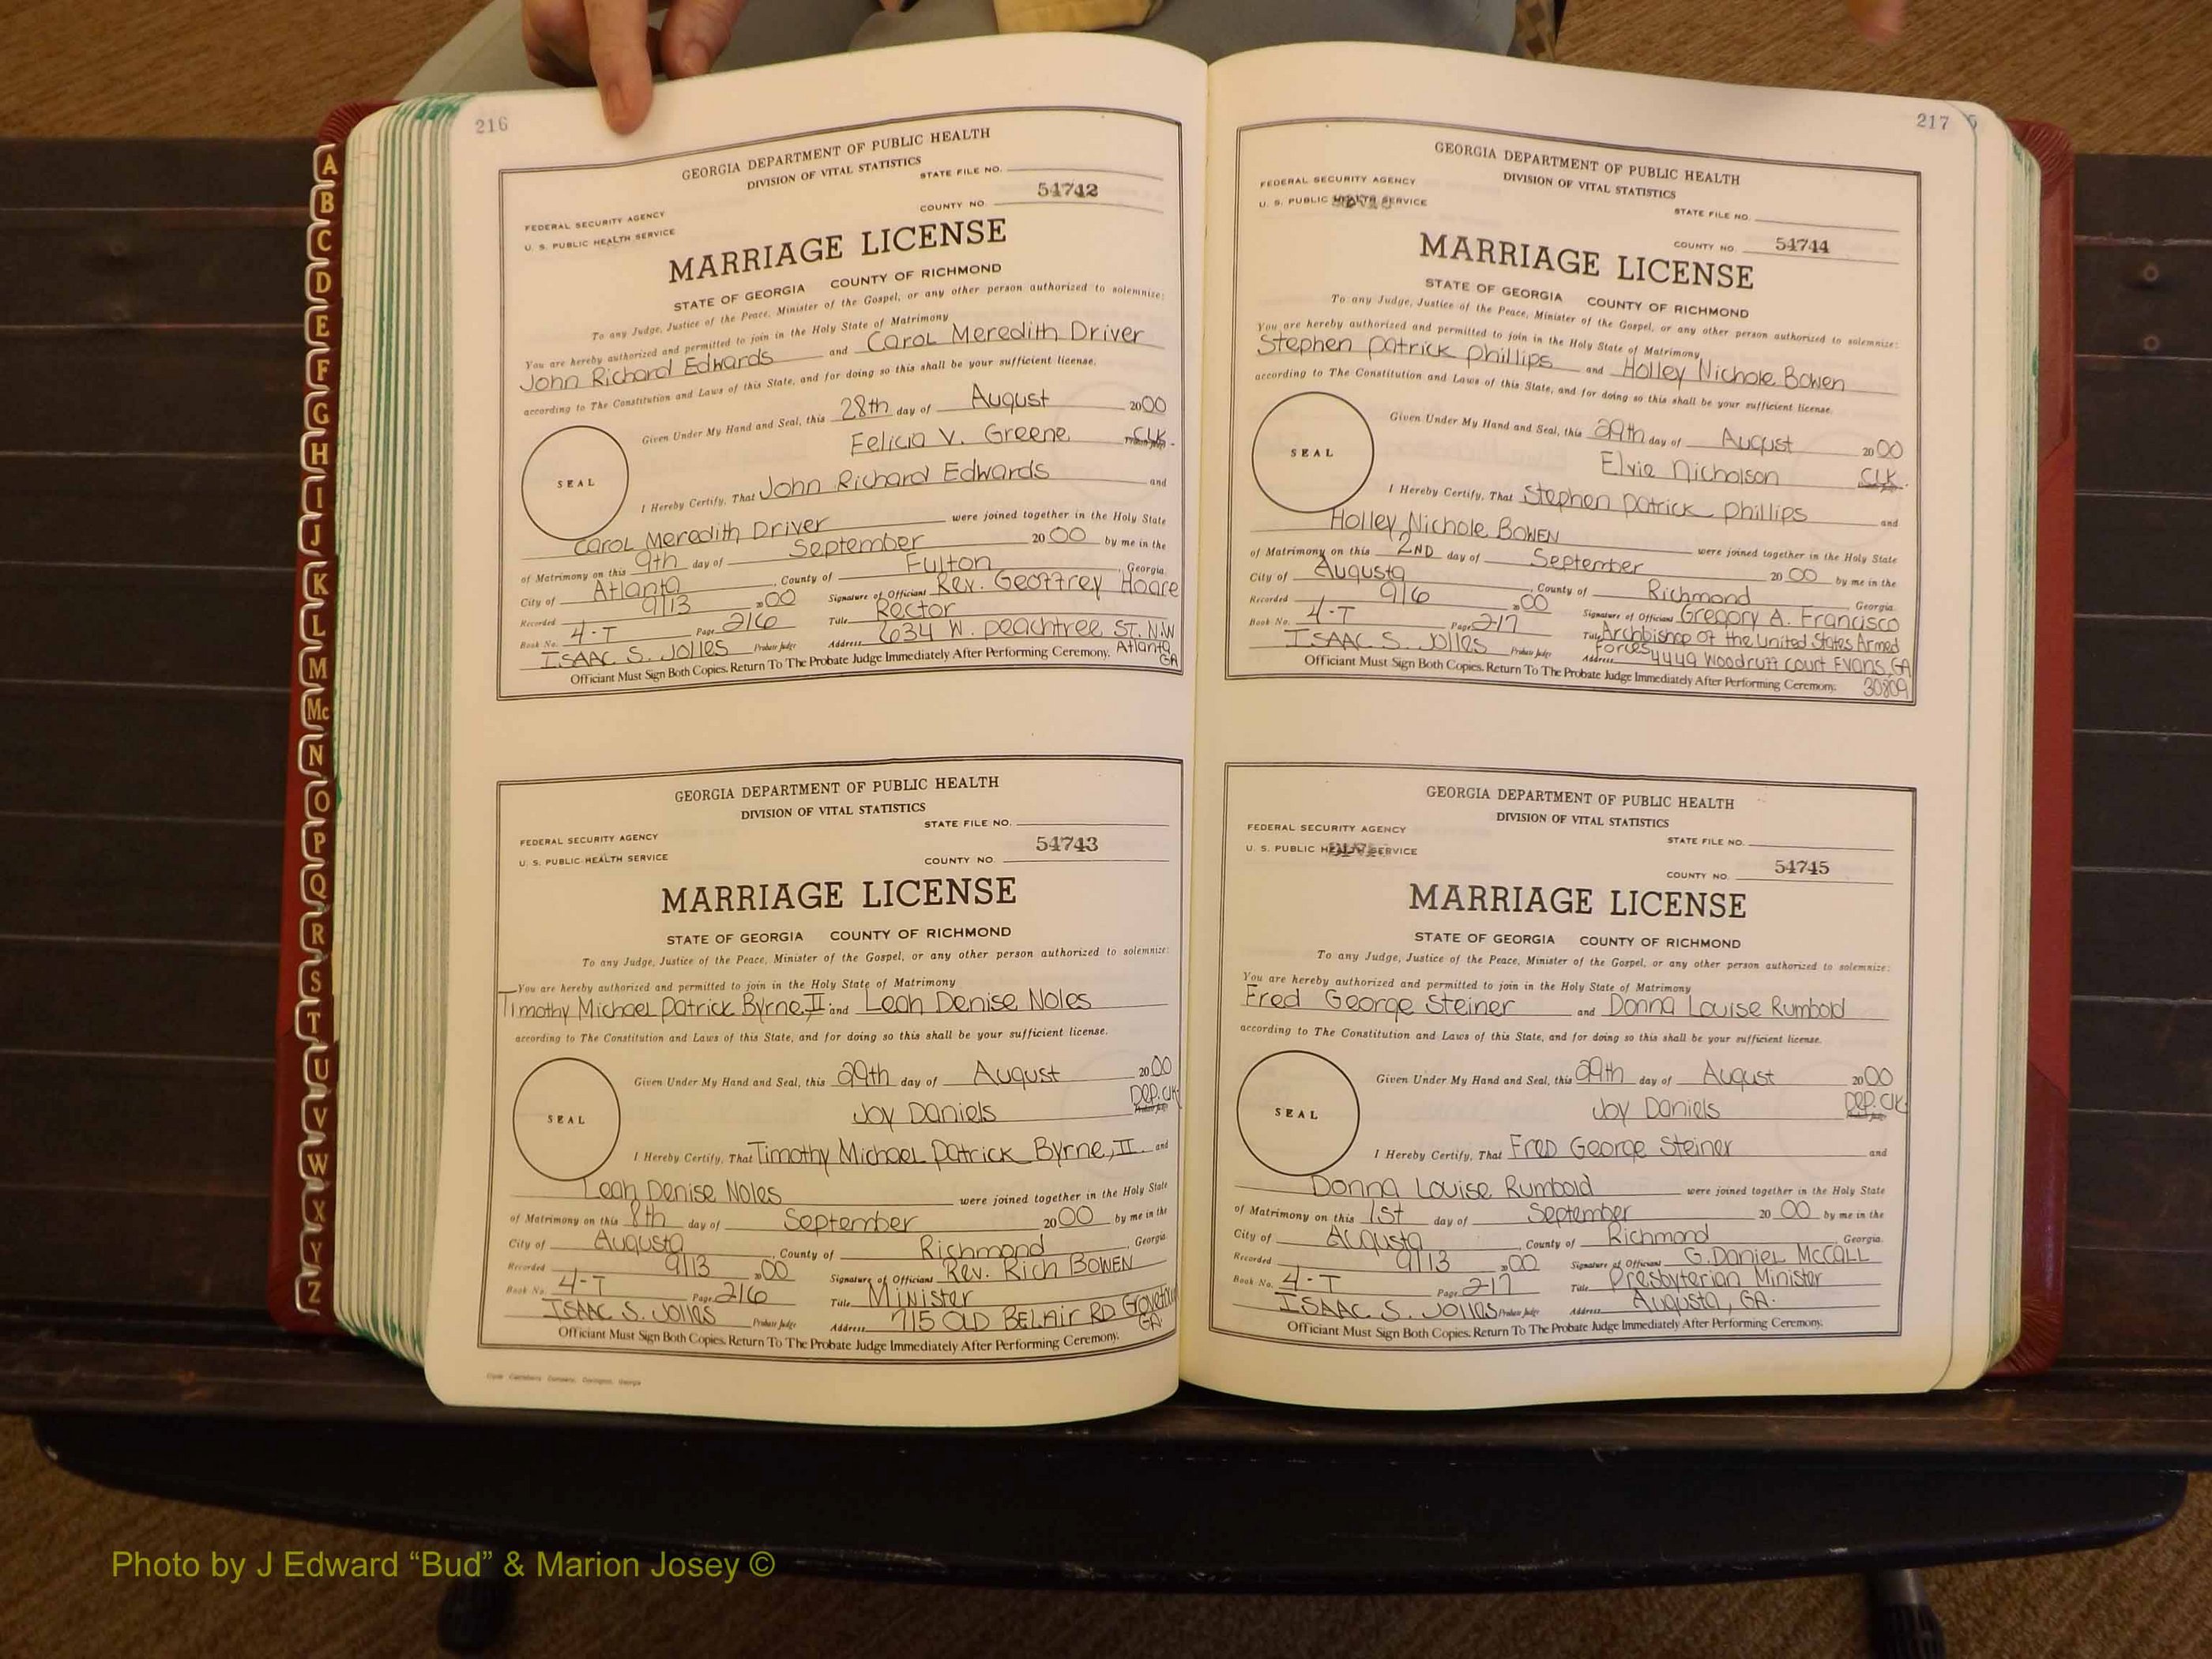 216
GEORGIA DEPARTMENT OF PUBLIC HEALTH
DIVISION OF VITAL STATISTICS
STATE FILE NO.
54742
COUNTY NO.
FEDERAL SECURITY AGENCY
U. S. PUBLIC HEALTH SERVICE
MARRIAGE LICENSE
STATE OF GEORGIA COUNTY OF RICHMOND
To any Judge, Justice of the Peace, Minister of the Gospel, or any other person authorized to solemnize:
You are hereby authorized and permitted to join in the Holy State of Matrimony
John Richard Edwards and Carol Meredith Driver
according to The Constitution and Laws of this State, and for doing so this shall be your sufficient license.
Given Under My Hand and Seal, this 28th day of August 2000
Felicia V. Greene CLK.
SEAL
I Hereby Certify, That John Richard Edwards and
Carol Meredith Driver were joined together in the Holy State
of Matrimony on this 9th day of September 2000 by me in the
City of Atlanta, County of Fulton, Georgia.
Recorded 9/13 2000 Signature of Officiant Rev. Geoffrey Hoare
Book No. 4-T Page 216 Title Rector
ISAAC S. Jolles Probate Judge Address 2634 W. Peachtree ST. N.W Atlanta GA
Officiant Must Sign Both Copies. Return To The Probate Judge Immediately After Performing Ceremony.
GEORGIA DEPARTMENT OF PUBLIC HEALTH
DIVISION OF VITAL STATISTICS
STATE FILE NO.
54743
COUNTY NO.
FEDERAL SECURITY AGENCY
U. S. PUBLIC HEALTH SERVICE
MARRIAGE LICENSE
STATE OF GEORGIA COUNTY OF RICHMOND
To any Judge, Justice of the Peace, Minister of the Gospel, or any other person authorized to solemnize:
You are hereby authorized and permitted to join in the Holy State of Matrimony
Timothy Michael Patrick Byrne, II and Leah Denise Noles
according to The Constitution and Laws of this State, and for doing so this shall be your sufficient license.
Given Under My Hand and Seal, this 29th day of August 2000
Joy Daniels Dep. Clk
SEAL
I Hereby Certify, That Timothy Michael Patrick Byrne, II and
Leah Denise Noles were joined together in the Holy State
of Matrimony on this 8th day of September 2000 by me in the
City of Augusta, County of Richmond, Georgia.
Recorded 9/13 2000 Signature of Officiant Rev. Rich BOWEN
Book No. 4-T Page 216 Title Minister
ISAAC S. Jolles Probate Judge Address 715 OLD BELAir RD Grovetown GA.
Officiant Must Sign Both Copies. Return To The Probate Judge Immediately After Performing Ceremony.
217
GEORGIA DEPARTMENT OF PUBLIC HEALTH
DIVISION OF VITAL STATISTICS
FEDERAL SECURITY AGENCY
U. S. PUBLIC HEALTH SERVICE
STATE FILE NO.
COUNTY NO. 54744
MARRIAGE LICENSE
STATE OF GEORGIA COUNTY OF RICHMOND
To any Judge, Justice of the Peace, Minister of the Gospel, or any other person authorized to solemnize:
You are hereby authorized and permitted to join in the Holy State of Matrimony
Stephen Patrick Phillips and Holley Nichole Bowen
according to The Constitution and Laws of this State, and for doing so this shall be your sufficient license.
Given Under My Hand and Seal, this 29th day of August 2000
Elvie Nicholson CLK.
SEAL
I Hereby Certify, That Stephen Patrick Phillips and
Holley Nichole BOWEN were joined together in the Holy State
of Matrimony on this 2ND day of September 2000 by me in the
City of Augusta, County of Richmond Georgia.
Recorded 9/6 2000 Signature of Officiant Gregory A. Francisco
Book No. 4-T Page 217 Title Archbishop of the United States Armed Forces
ISAAC S. Jolles Probate Judge Address 4449 Woodruff Court Evans, GA 30809
Officiant Must Sign Both Copies. Return To The Probate Judge Immediately After Performing Ceremony.
GEORGIA DEPARTMENT OF PUBLIC HEALTH
DIVISION OF VITAL STATISTICS
FEDERAL SECURITY AGENCY
U. S. PUBLIC HEALTH SERVICE
STATE FILE NO.
COUNTY NO. 54745
MARRIAGE LICENSE
STATE OF GEORGIA COUNTY OF RICHMOND
To any Judge, Justice of the Peace, Minister of the Gospel, or any other person authorized to solemnize:
You are hereby authorized and permitted to join in the Holy State of Matrimony
Fred George Steiner and Donna Louise Rumbold
according to The Constitution and Laws of this State, and for doing so this shall be your sufficient license.
Given Under My Hand and Seal, this 29th day of August 2000
Joy Daniels Dep. Clk
SEAL
I Hereby Certify, That Fred George Steiner and
Donna Louise Rumbold were joined together in the Holy State
of Matrimony on this 1st day of September 2000 by me in the
City of Augusta, County of Richmond, Georgia.
Recorded 9/13 2000 Signature of Officiant G. Daniel McCALL
Book No. 4-T Page 217 Title Presbyterian Minister
ISAAC S. Jolles Probate Judge Address Augusta, GA.
Officiant Must Sign Both Copies. Return To The Probate Judge Immediately After Performing Ceremony.
A
B
C
D
E
F
G
H
I
J
K
L
M
Mc
N
O
P
Q
R
S
T
U
V
W
X
Y
Z
Photo by J Edward “Bud” & Marion Josey ©